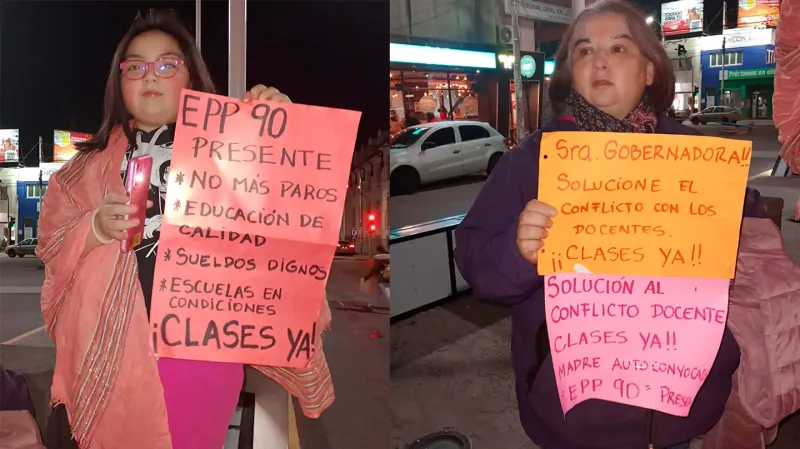 EPP 90
PRESENTE
* NO MÁS PAROS
* EDUCACIÓN DE
CALIDAD
* SUELDOS DIGNOS
* ESCUELAS EN
CONDICIONES
¡CLASES YA!
Sra. GOBERNADORA!!
SOLUCIONE EL
CONFLICTO CON LOS
DOCENTES.
¡¡CLASES YA!!
SOLUCIÓN AL
CONFLICTO DOCENTE
CLASES YA!!
MADRE AUTOCONVOCA
EPP 90